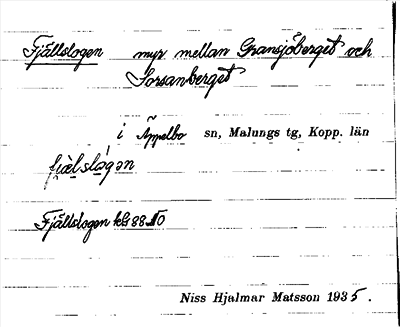 Fjällslogen myr mellan Gransjöberget och
Sorsanberget
i Äppelbo sn, Malungs tg, Kopp. län
fjàlslógən
Fjällslogen
Niss Hjalmar Matsson 1935.